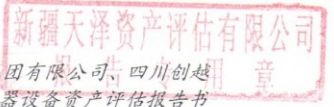 新疆天泽资产评估有限公司
章
团有限公司、四川创越
器设备资产评估报告书